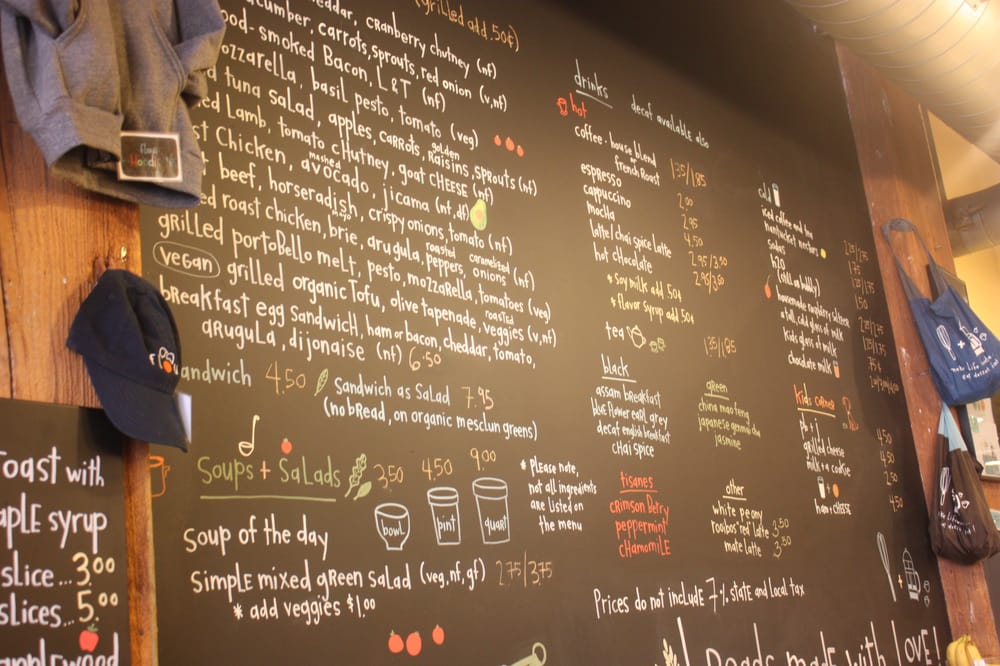 (grilled add .50¢)
cheddar, cranberry chutney (nf)
cucumber, carrots, sprouts, red onion (v,nf)
wood-smoked Bacon, L & T (nf)
mozzarella, basil pesto, tomato (veg)
tuna salad, apples, carrots, golden raisins, sprouts (nf)
Lamb, tomato chutney, goat CHEESE (nf)
Chicken, mashed avocado, jicama (nf, df)
beef, horseradish mayo, crispy onions, tomato (nf)
roast chicken, brie, arugula, roasted peppers, caramelized onions (nf)
grilled portoBello melt, pesto, mozzarella, tomatoes (veg)
vegan grilled organic Tofu, olive tapenade, roasted veggies (v,nf)
breakfast egg sandwich, ham or bacon, cheddar, tomato,
arugula, dijonaise (nf) 6.50
sandwich 4.50
Sandwich as Salad 7.95
(no bread, on organic mesclun greens)
Soups + Salads 3.50 4.50 9.00
bowl pint quart
* Please note,
not all ingredients
are listed on
the menu
Soup of the day
Simple mixed green salad (veg,nf,gf) 2.75/3.75
* add veggies $1.00
Toast with
maple syrup
slice... 3.00
slices... 5.00
applewood
drinks
decaf available also
hot
coffee - house blend
or French Roast 1.35/1.85
espresso 2.00
cappuccino 2.95
mocha 4.50
latte/chai spice latte 2.95/3.50
hot chocolate 2.95/3.50
* soy milk add .50¢
* flavor syrup add .50¢
tea 1.35/1.85
black
assam breakfast
blue flower earl grey
decaf english breakfast
chai spice
green
china mao feng
japanese genmai cha
jasmine
tisanes
crimson berry
peppermint
chamomile
other
white peony
rooibos "red" latte 3.50
mate latte 3.50
cold
iced coffee and tea
nantucket nectars
sodas
H2O
(still and bubbly)
homemade raspberry
a tall, cold glass of milk
kids glass of milk
chocolate milk
kids corner
pb + j 4.50
grilled cheese 4.50
milk + cookie 2.50
ham + cheese 4.50
Prices do not include 7% state and local tax
Breads made with LOVE!